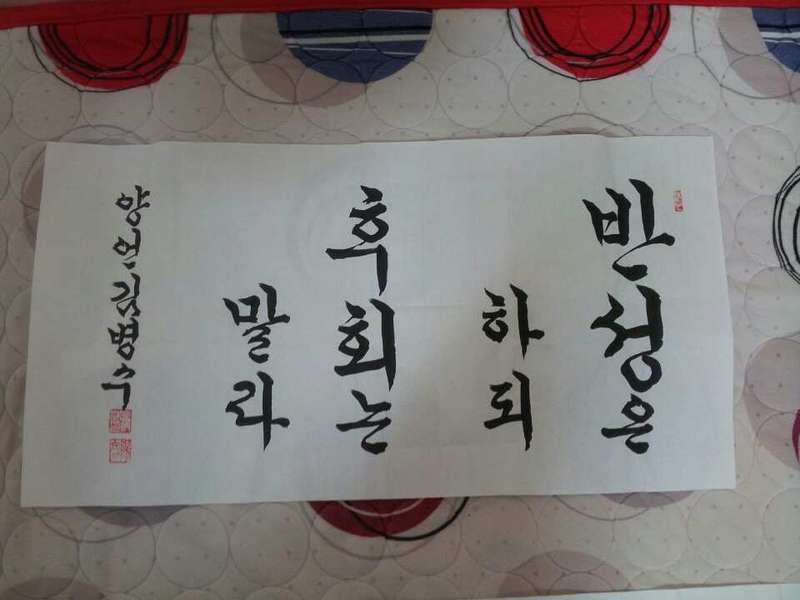 반성은
하되
후회는
말라
양언김병수